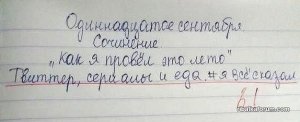 Одиннадцатое сентября.
Сочинение
„Как я провёл это лето"
Твиттер, сериалы и еда. #я всё сказал